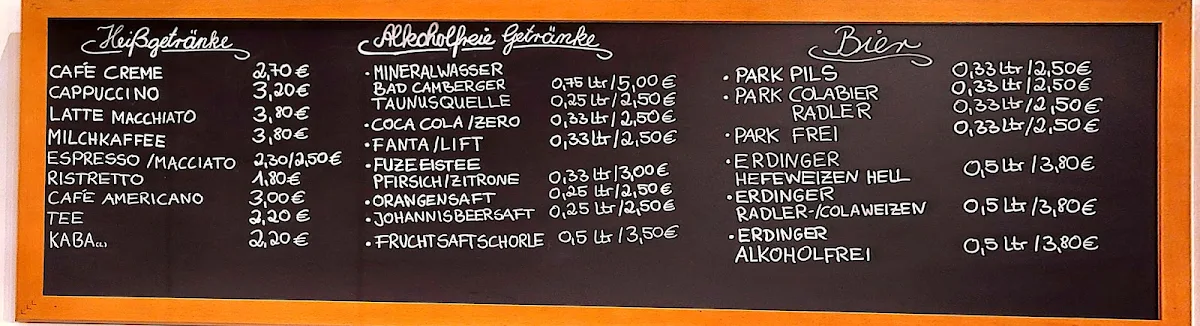 Heißgetränke
CAFÉ CREME 2,70 €
CAPPUCCINO 3,20€
LATTE MACCHIATO 3,80€
MILCHKAFFEE 3,80€
ESPRESSO/MACCIATO 2,30/2,50€
RISTRETTO 1,80€
CAFÉ AMERICANO 3,00€
TEE 2,20€
KABA 2,20€
Alkoholfreie Getränke
· MINERALWASSER
BAD CAMBERGER 0,75 Ltr/5,00€
TAUNUSQUELLE 0,25 Ltr/2,50€
· COCA COLA/ZERO 0,33 Ltr/2,50€
· FANTA/LIFT 0,33 Ltr/2,50€
· FUZE EISTEE
PFIRSICH/ZITRONE 0,33 Ltr/3,00€
· ORANGENSAFT 0,25 Ltr/2,50€
· JOHANNISBEERSAFT 0,25 Ltr/2,50€
· FRUCHTSAFTSCHORLE 0,5 Ltr/3,50€
Bier
· PARK PILS 0,33 Ltr/2,50€
· PARK COLABIER 0,33 Ltr/2,50€
RADLER 0,33 Ltr/2,50€
· PARK FREI 0,33 Ltr/2,50€
· ERDINGER
HEFEWEIZEN HELL 0,5 Ltr/3,80€
· ERDINGER
RADLER-/COLAWEIZEN 0,5 Ltr/3,80€
· ERDINGER
ALKOHOLFREI 0,5 Ltr/3,80€